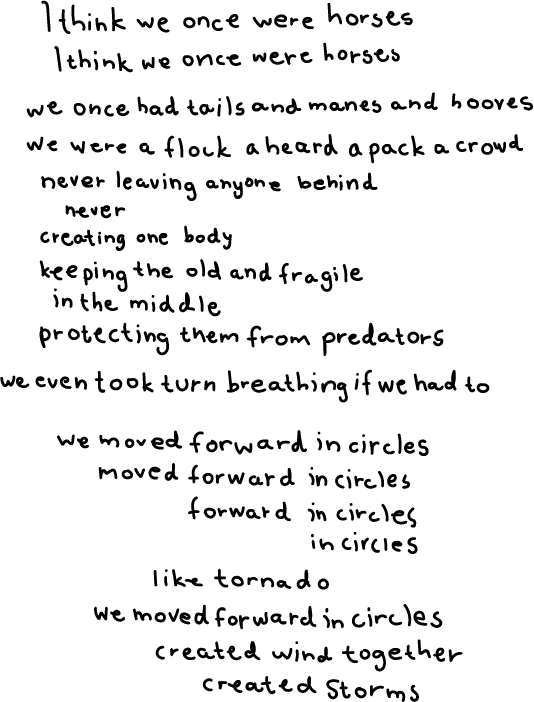 I think we once were horses
I think we once were horses
we once had tails and manes and hooves
we were a flock a heard a pack a crowd
never leaving anyone behind
never
creating one body
keeping the old and fragile
in the middle
protecting them from predators
we even took turn breathing if we had to
we moved forward in circles
moved forward in circles
forward in circles
in circles
like tornado
we moved forward in circles
created wind together
created storms